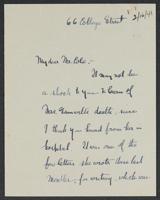 66 College Street
2/16/41
My dear Mr. Blis:-
It may not be
a shock to you to learn of
Mrs. Granville's death, since
I think you heard from her in
hospital. It was one of the
few letters she wrote these last
months, for writing, which was